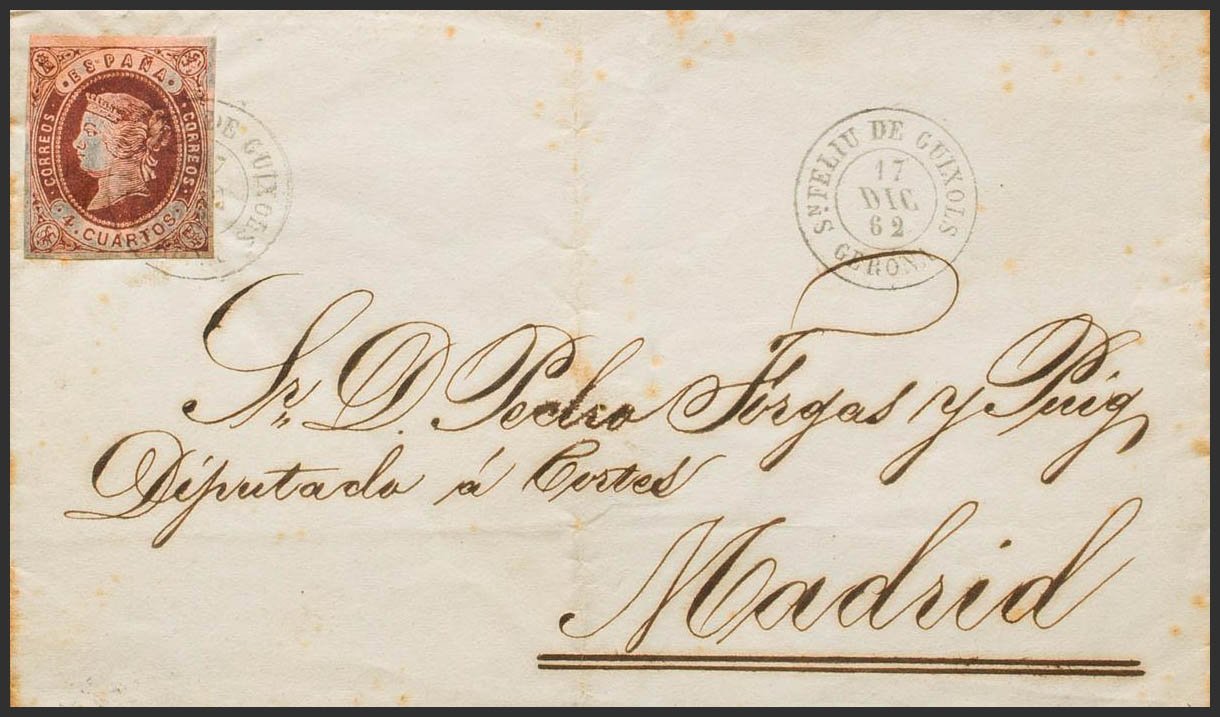 ESPAÑA
CORREOS CORREOS
4. CUARTOS
DE GUIXOLS
Sⁿ FELIU DE GUIXOLS
17
DIC
62
GERONA
Sr. D. Pedro Forgas y Puig
Diputado á Cortes
Madrid